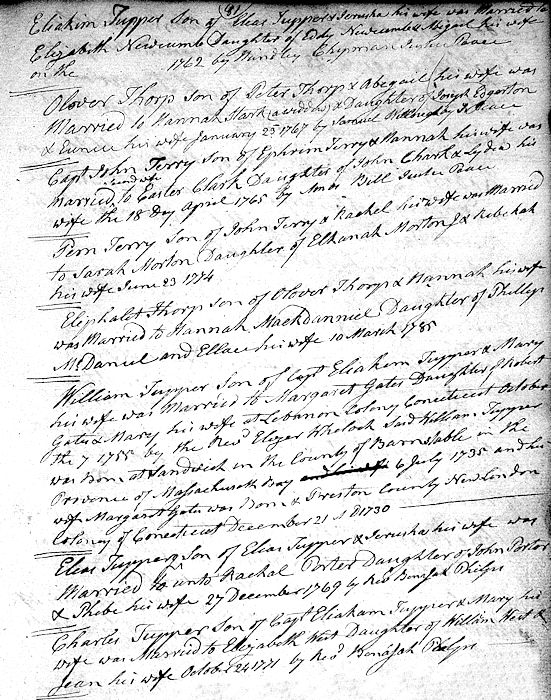 Eliakim Tupper Son of Elias Tupper & Jerusha his wife was Married to
Elizabeth Newcomb Daughter of Eddy Newcomb & Abigail his wife
on the 1762 by Handley Chipman Justice Peace
Olover Thorp Son of Peter Thorp & Abegail his wife was
Married to Hannah Stark (a widow) & Daughter of Joseph Edgerton
& Eunice his wife January 25th 1767 by Samuel Willoughby Js Peace
Capt John Terry Son of Ephrim Terry & Hannah his wife was
2nd wife
Married to Easter Clark Daughter of John Chark & Lydia his
wife the 18 Day April 1765 by Amos Bill Justice Peace
Fern Terry Son of John Terry & Rachel his wife was Married
to Sarah Morton Daughter of Elkanah Morton & Rebekah
his wife June 23 1774
Eliphalet Thorp Son of Olover Thorp & Hannah his wife
was Married to Hannah MackDanniel Daughter of Phillip
McDaniel and his wife 10 March 1785
William Tupper Son of Capt Eliakem Tupper & Mary
his wife was Married to Margaret Gates Daughter of Robert
Gates & Mary his wife at Lebanon Colony Conecticut October
the 7 1755 by the Revd Elezer Wheloch Said William Tupper
was Born at Sandwich in the County of Barnstable in the
Provence of Massachusets Bay 6 July 1735 and his
wife Margaret Gates was Born Preston County New London
Colony of Conecticut December 21 AD 1730
Elias Tupper Son of Elias Tupper & Jerusha his wife was
Married to unto Rachal Porter Daughter of John Porter
& Phebe his wife 27 December 1769 by Revd Benajah Phelps
Charles Tupper Son of Capt Eliakam Tupper & Mary his
wife was Married to Elizabeth West Daughter of William West &
Jean his wife October 24 1771 by Revd Benajah Phelps